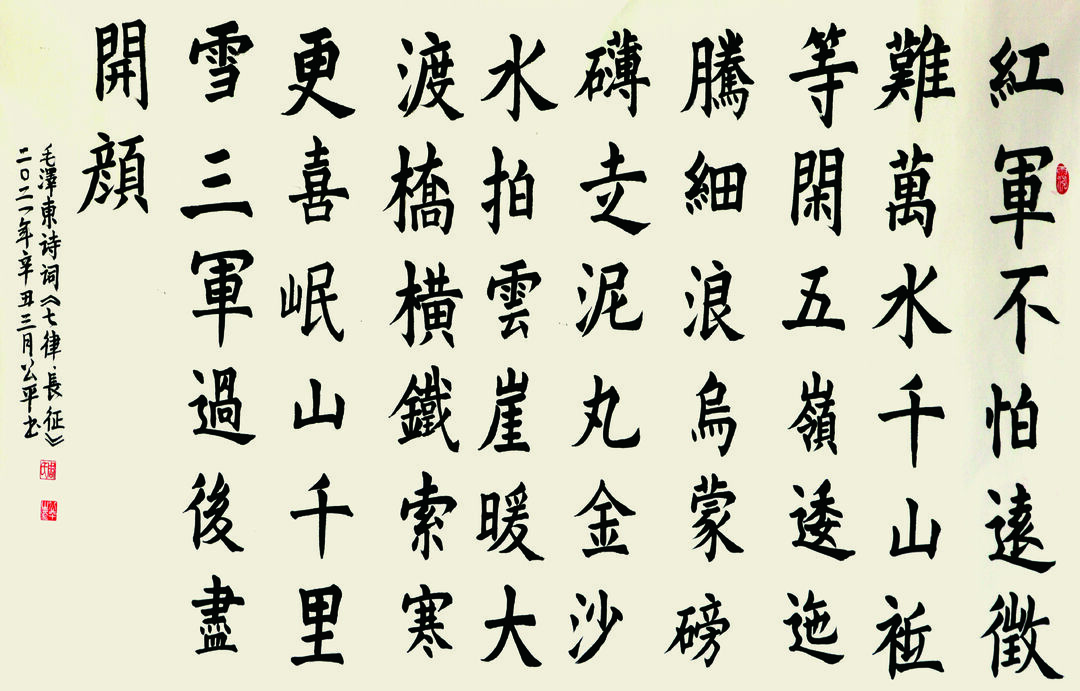 紅軍不怕遠徵
難萬水千山衹
等閑五嶺逶迤
騰細浪烏蒙磅
礴走泥丸金沙
水拍雲崖暖大
渡橋横鐵索寒
更喜岷山千里
雪三軍過後盡
開顔
毛澤東诗词《七律·長征》
二〇二一年辛丑三月公平书